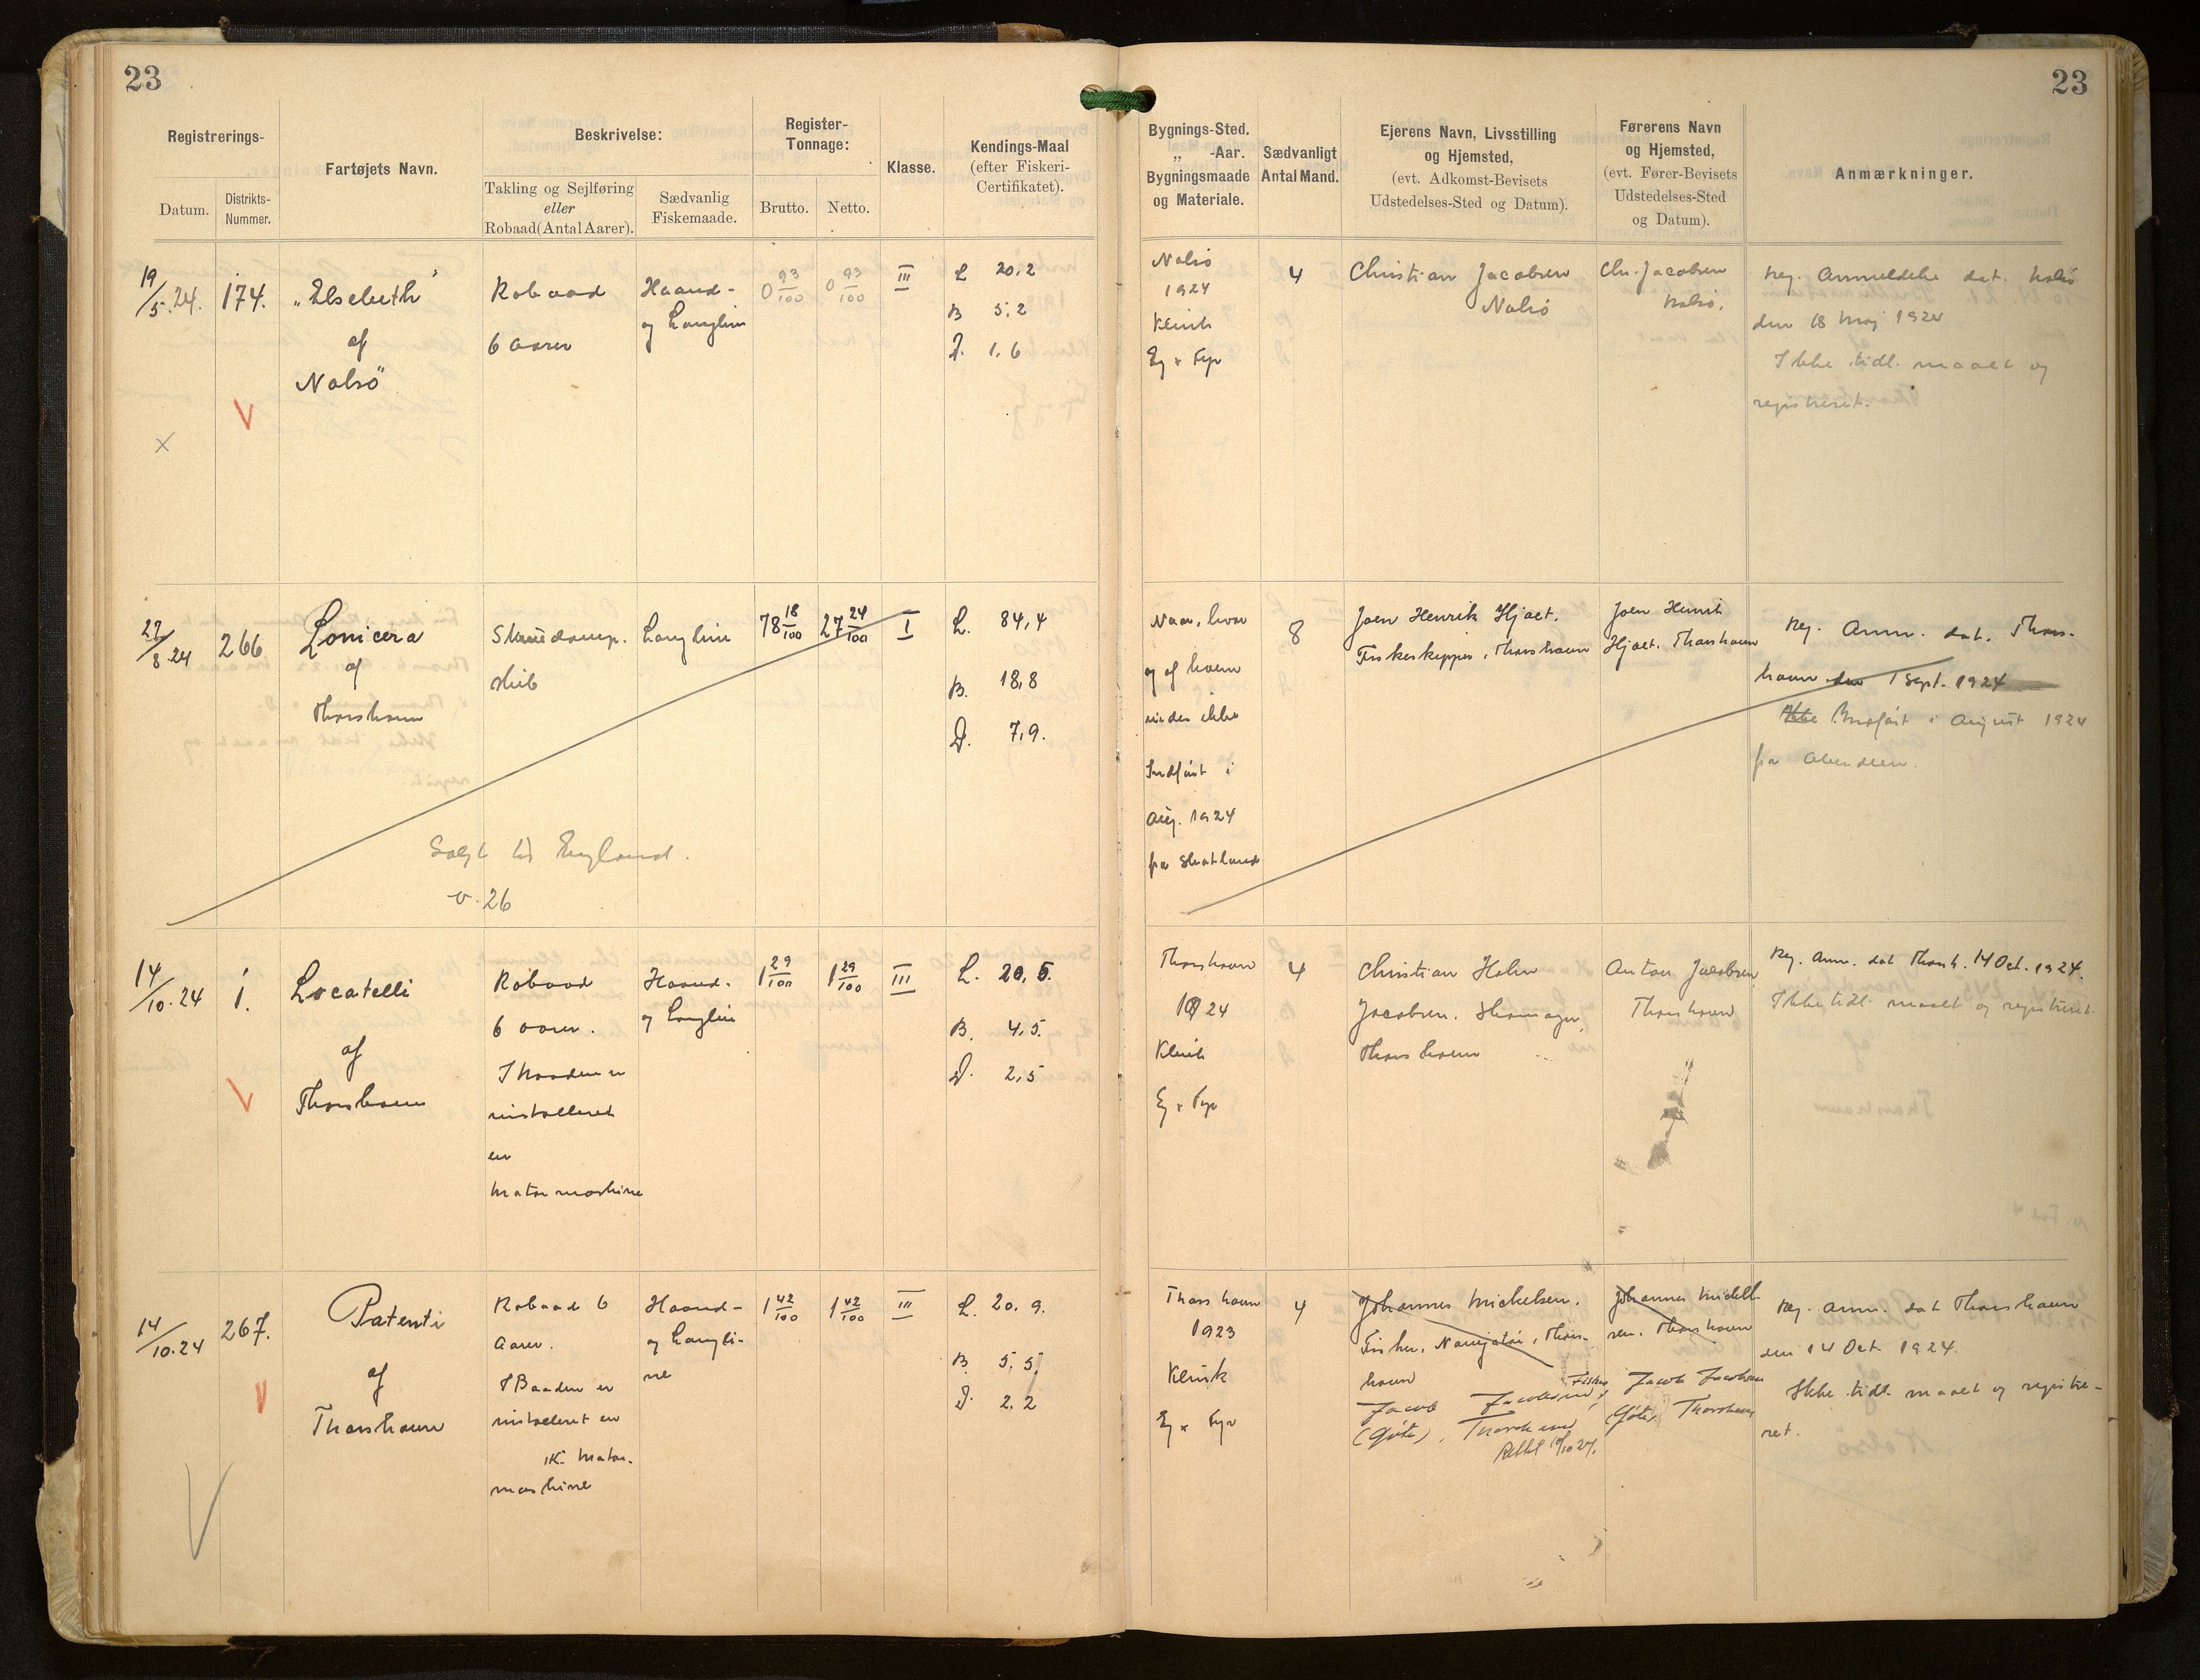 23
23
Registrerings-
Datum.
Distrikts-
Nummer.
Fartøjets Navn.
Beskrivelse:
Takling og Sejlføring
eller
Robaad (Antal Aarer).
Sædvanlig
Fiskemaade.
Register-
Tonnage:
Brutto.
Netto.
Klasse.
Kendings-Maal
(efter Fiskeri-
Certifikatet).
Bygnings-Sted.
„ -Aar.
Bygningsmaade
og Materiale.
Sædvanligt
Antal Mand.
Ejerens Navn, Livsstilling
og Hjemsted,
(evt. Adkomst-Bevisets
Udstedelses-Sted og Datum).
Førerens Navn
og Hjemsted,
(evt. Fører-Bevisets
Udstedelses-Sted
og Datum).
Anmærkninger.
19/5.24.
174.
„Elsebeth"
af
Nolsö
Robaad
6 Aarer
Haand-
og Langline
0 93/100
0 93/100
III
L 20,2
B 5,2
D. 1,6
Nolsö
1924
Klink
Eg & Fyr
4
Christian Jacobsen
Nolsö
Chr. Jacobsen
Nolsö.
Reg. Anmeldelse dat. Nolsö
den 18 Maj 1924
Ikke tidl. maalt og
registreret.
22/8.24
266
Lonicera
af
Thorshavn
skib
Langline
78 18/100
27 24/100
I
L. 84,4
B. 18,8
D. 7,9.
Naar, hvor
og af hvem
vides ikke
Indført i
Aug. 1924
fra Shetland
8
Joen Henrik Hjalt.
Fiskeskipper, Thorshavn
Joen Henrik
Hjalt. Thorshavn
Reg. Anm. dat. Thors-
havn den 1 Sept. 1924
Ikke Indført i August 1924
fra Aberdeen.
Solgt til England.
26
14/10.24
1.
Locatelli
af
Thorshavn
Robaad
6 Aarer.
I Baaden er
installeret
en
Motormaskine
Haand-
og Langline
1 29/100
1 29/100
III
L. 20,5.
B. 4,5.
D. 2,5
Thorshavn
1924
Klink
Eg & Fyr
4
Christian Holm
Jacobsen. Skomager,
Thorshavn
Anton Jacobsen,
Thorshavn
Reg. Anm. dat Thorsh. 14 Oct. 1924.
Ikke tidl. maalt og registreret.
14/10.24
267.
Patenti
af
Thorshavn
Robaad 6
Aarer.
I Baaden er
installeret en
1K. Motor-
maskine
Haand-
og Langli-
ne
1 42/100
1 42/100
III
L. 20,9.
B. 5,5
D. 2,2
Thorshavn
1923
Klink
Eg & Fyr
4
Johannes Michelsen.
Fisker, Thors-
havn
Jacob Jacobsen, Fisker
(Gøta), Thorshavn
Johannes Michel-
sen. Thorshavn
Jacob Jacobsen
(Gøta) Thorshavn
Reg. Anm. dat Thorshavn
den 14 Oct. 1924.
Ikke tidl. maalt og registre-
ret.